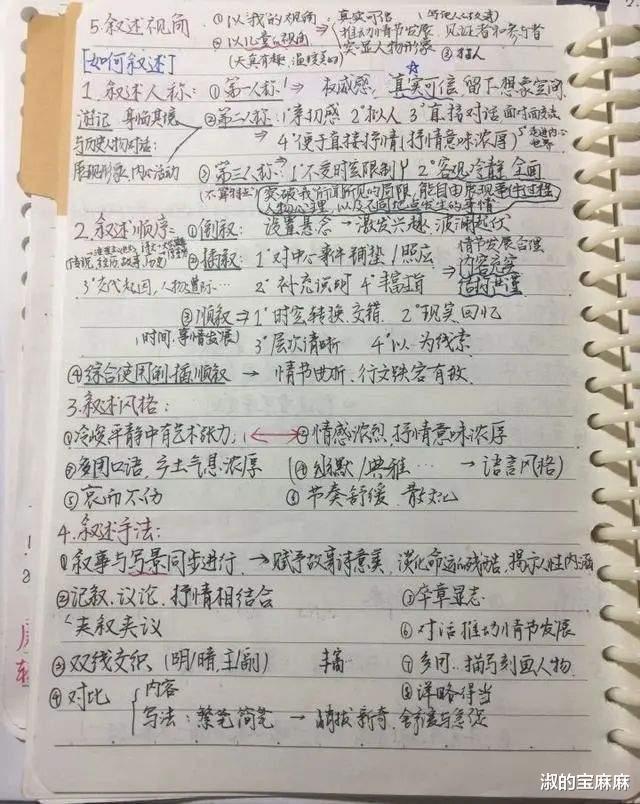 5.叙述视角 ①以我的视角 真实可信
②以儿童的视角 推动情节发展 见证者和参与者
(天真有趣、温暖美的) 突显人物形象
[如何叙述]
1.叙述人称: ①第一人称 → 权威感, 真实可信 留下想象空间
游记 身临其境 ②第二人称: 1°亲切感 2°拟人 3°直接对话
与历史人物对话: ⇒ 4°便于直接抒情(抒情意味浓厚) 5°走进内心世界
展现形象、内心活动 ③第三人称 ⇒ 1°不受时空限制 2°客观冷静 全面
突破我所闻所见的局限,能自由展现事件过程
人物心理 以及不同地点发生的事情
2.叙述顺序: ①倒叙: 设置悬念 → 激发兴趣 波澜起伏
②插叙: 1°对中心事件铺垫/照应 情节发展合理
3°交代起因, 2°补充说明 4°丰富 ⇒ 内容充实
结构严谨
③顺叙 ⇒ 1°时空转换、交错 2°现实、回忆
(时间、事情发展) 3°层次清晰 4°以 为线索
④综合使用倒、插、顺叙 → 情节曲折、行文跌宕有致
3.叙述风格:
①冷峻平静中有艺术张力, ②情感浓烈,抒情意味浓厚
③多用口语,乡土气息浓厚 (④幽默/典雅… → 语言风格)
⑤哀而不伤 ⑥节奏舒缓 散文化
4.叙述手法:
①叙事与写景同步进行 → 赋予故事诗意美,淡化命运的残酷,揭示人性内涵
②记叙、议论、抒情相结合 ⑤卒章显志
夹叙夹议 ⑥对话推动情节发展
③双线交织 (明/暗,主/副) 丰富 ⑦多用..描写刻画人物
④对比 内容 ⑧详略得当
写法:繁笔简笔 →
淑的宝麻麻